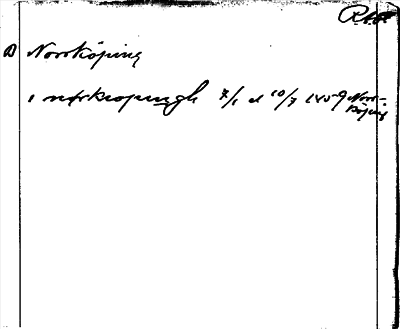 D Norrköping
i nørkiopungh 7/1 el 10/7 1459 Norr-
köping